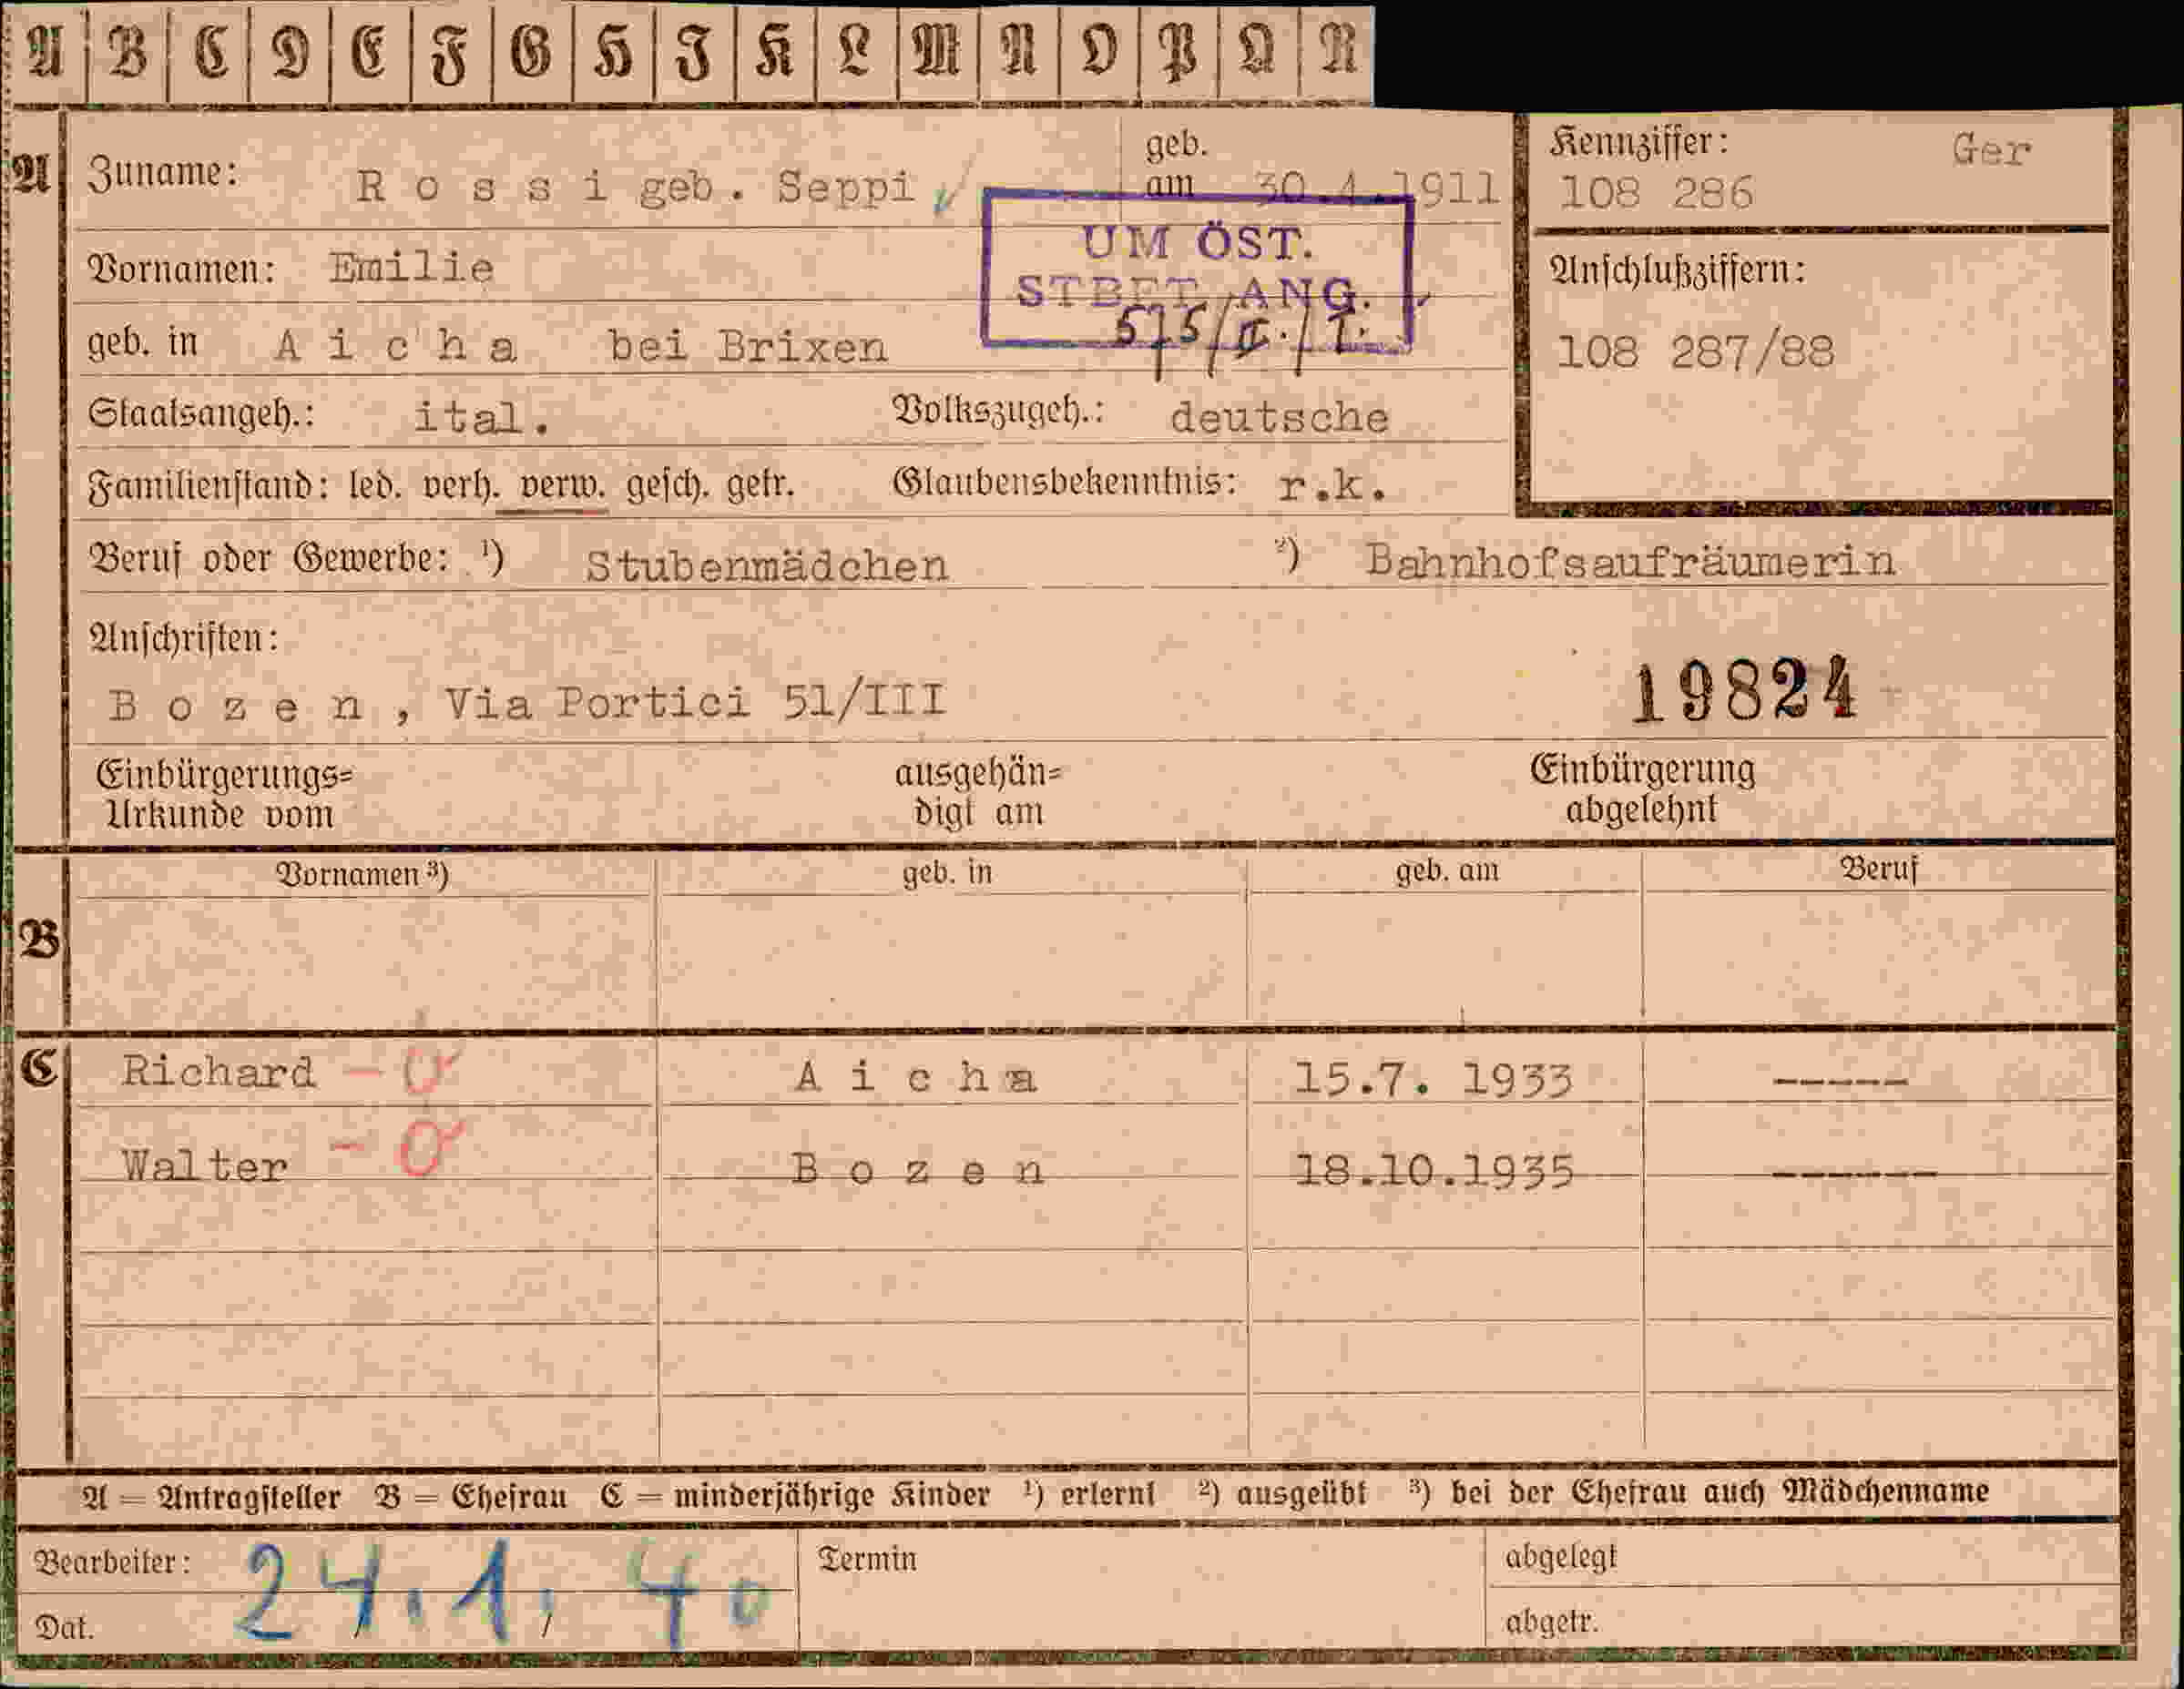 A B C D E F G H I K L M N O P Q R
A Zuname: Rossi geb. Seppi geb. am 30.4.1911
Kennziffer: Ger
108 286
UM ÖST.
STBFT. ANG.
Vornamen: Emilie
Anschlußziffern:
geb. in Aicha bei Brixen
108 287/88
Staatsangeh.: ital. Volkszugeh.: deutsche
Familienstand: led. verh. verw. gesch. getr. Glaubensbekenntnis: r.k.
Beruf oder Gewerbe: ¹) Stubenmädchen ²) Bahnhofsaufräumerin
Anschriften:
Bozen, Via Portici 51/III 19824
Einbürgerungs= ausgehän= Einbürgerung
Urkunde vom digt am abgelehnt
Vornamen ³) geb. in geb. am Beruf
B
C Richard - Aicha 15.7. 1933 -----
Walter - Bozen 18.10.1935 ------
A = Antragsteller B = Ehefrau C = minderjährige Kinder ¹) erlernt ²) ausgeübt ³) bei der Ehefrau auch Mädchenname
Bearbeiter: Termin abgelegt
24.1.40
Dat. abgetr.